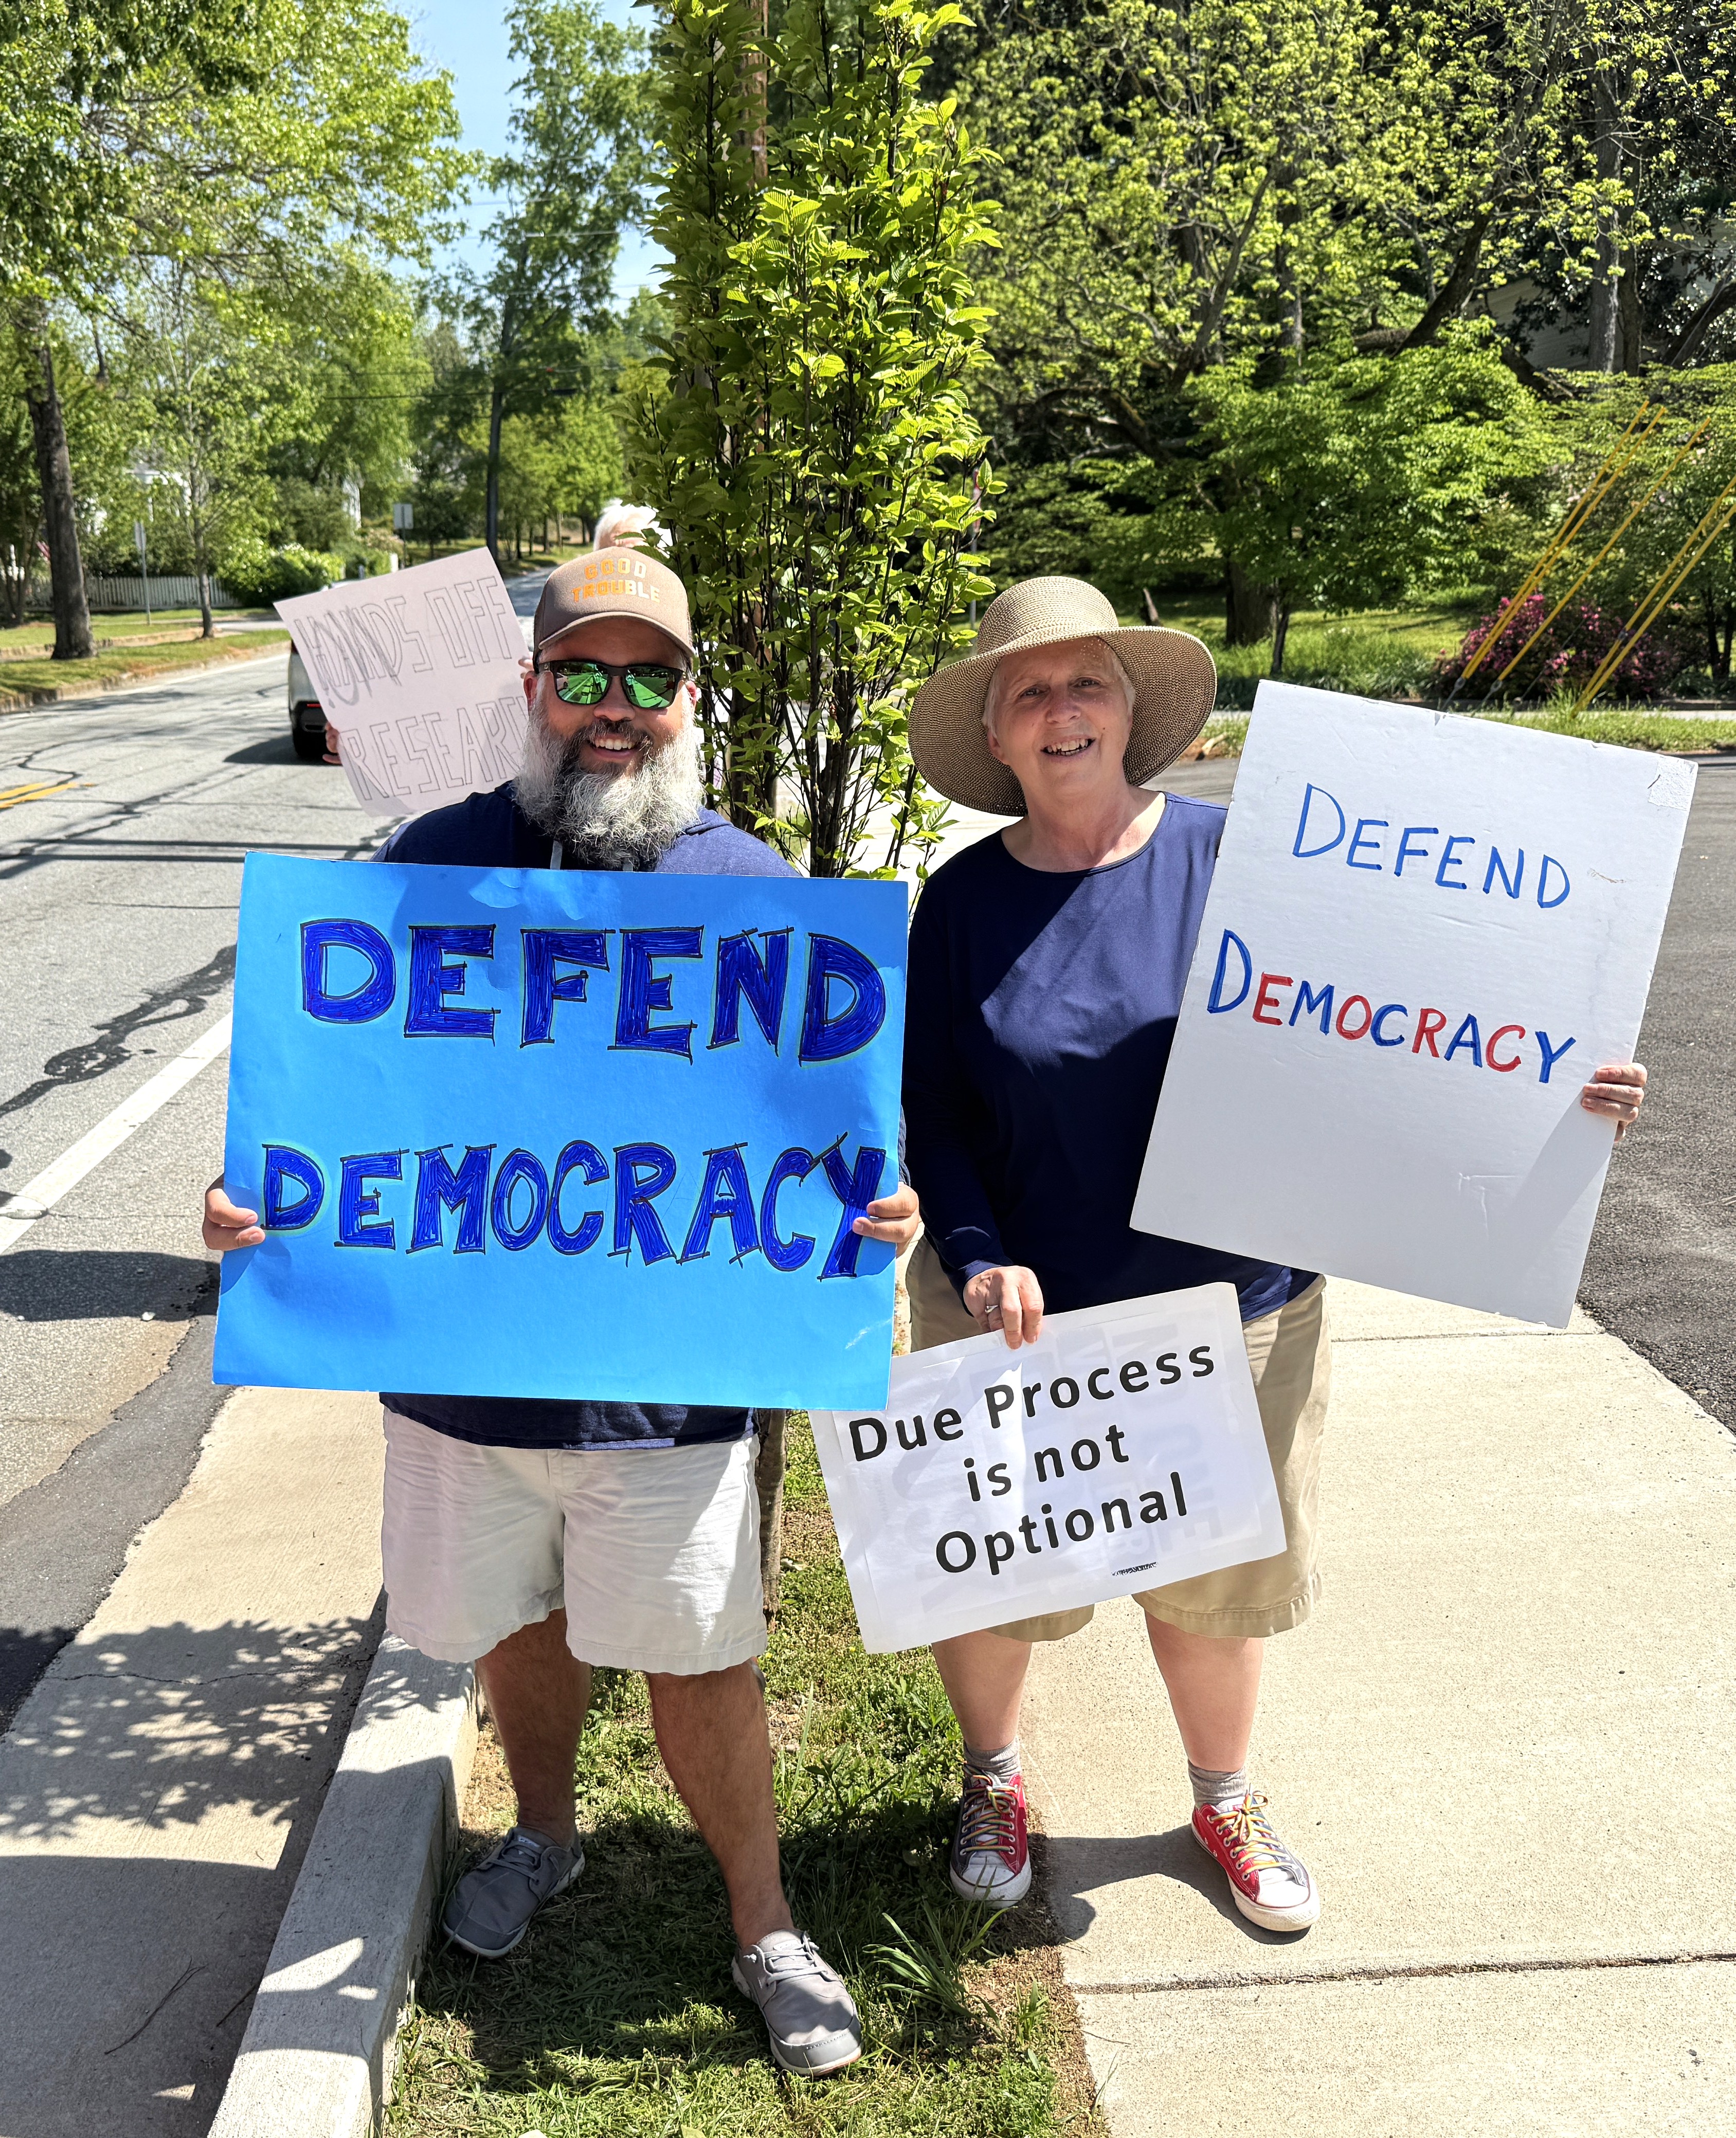 HANDS OFF
RESEARCH
GOOD
TROUBLE
DEFEND
DEMOCRACY
DEFEND
DEMOCRACY
Due Process
is not
Optional